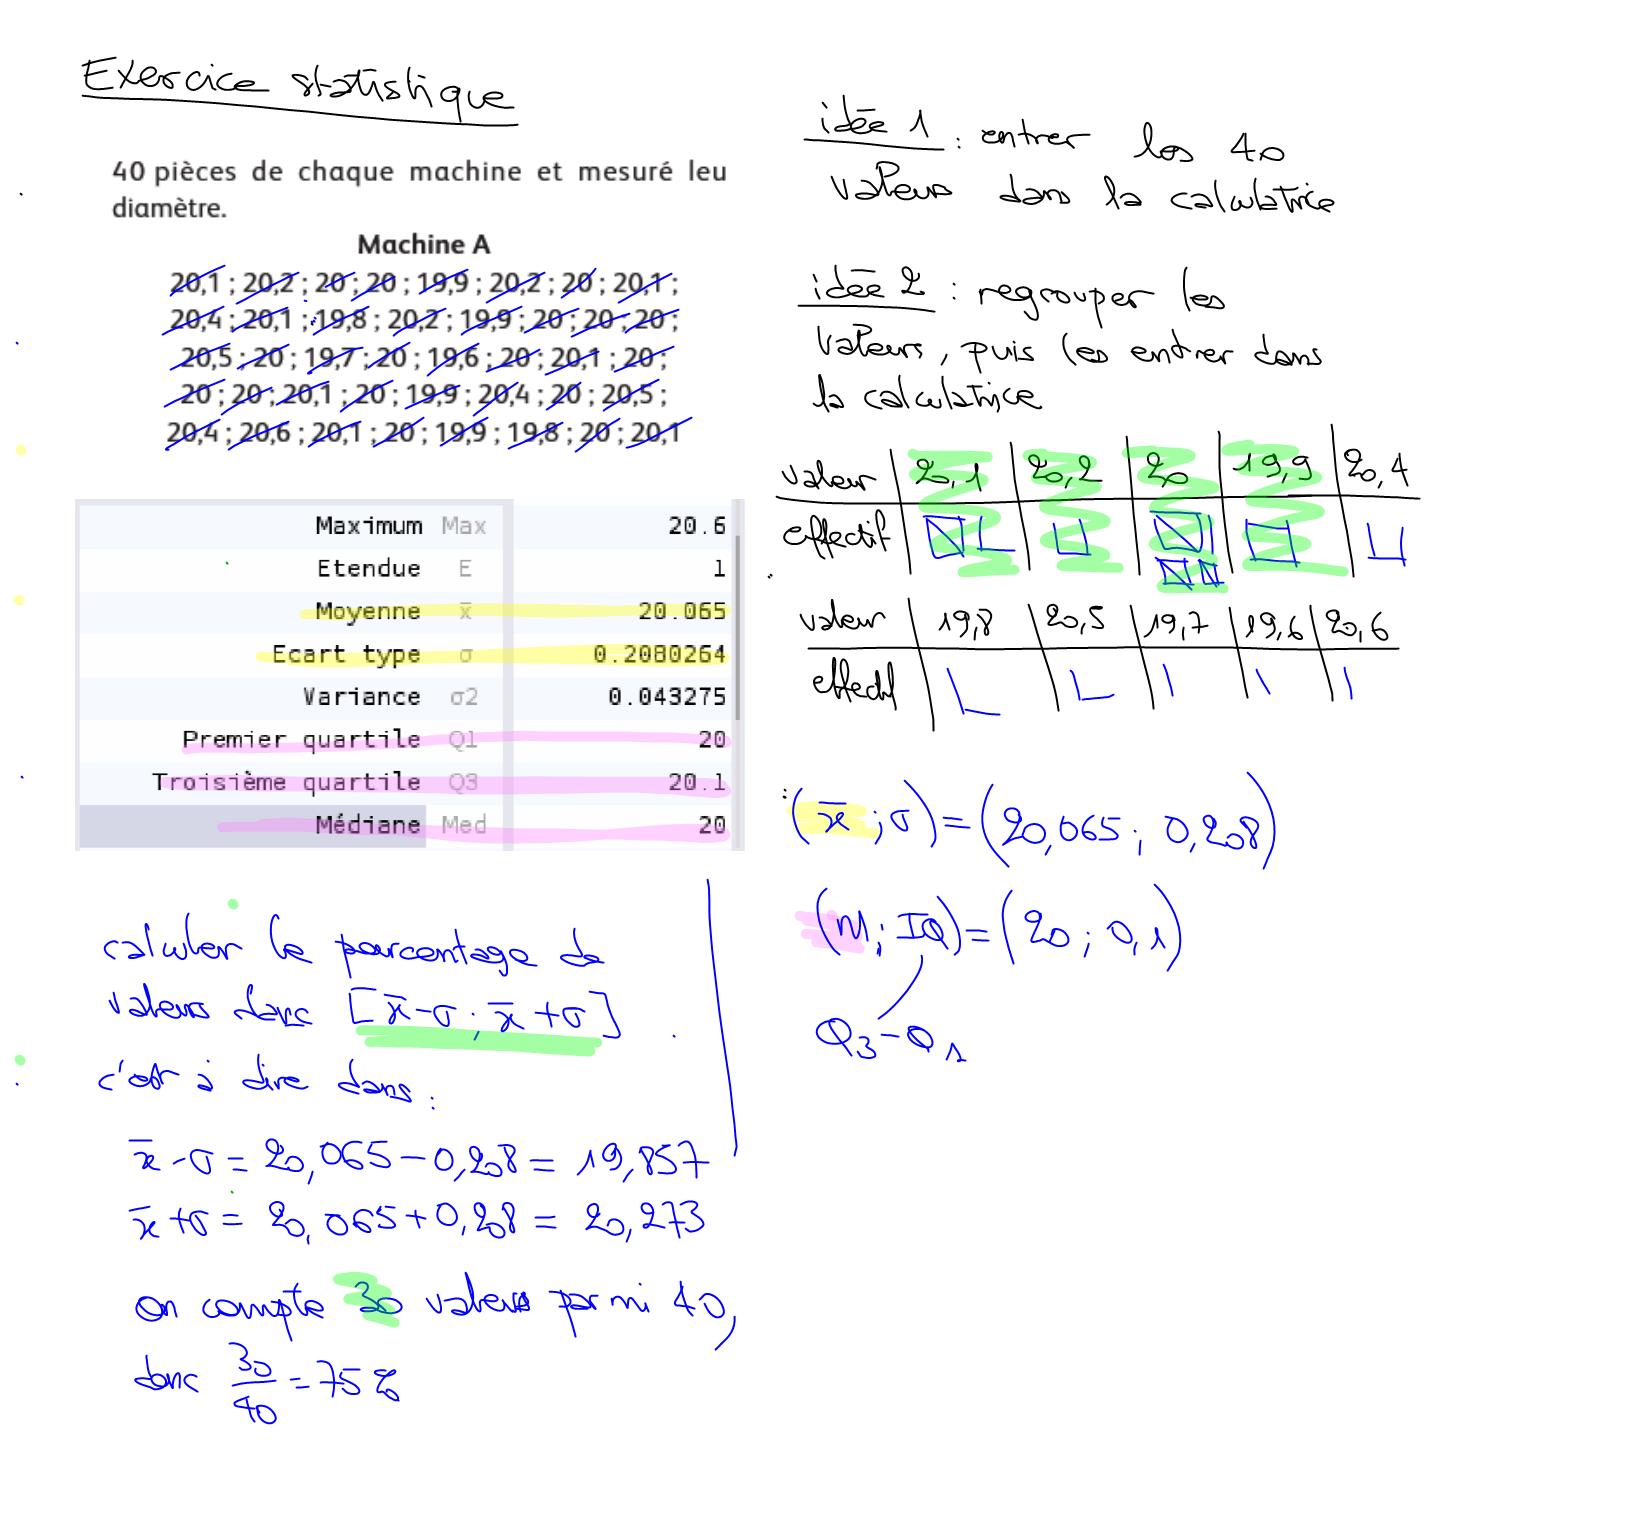 Exercice statistique
40 pièces de chaque machine et mesuré leu
diamètre.
Machine A
20,1 ; 20,2 ; 20 ; 20 ; 19,9 ; 20,2 ; 20 ; 20,1 ;
20,4 ; 20,1 ; 19,8 ; 20,2 ; 19,9 ; 20 ; 20 ; 20 ;
20,5 ; 20 ; 19,7 ; 20 ; 19,6 ; 20 ; 20,1 ; 20 ;
20 ; 20 ; 20,1 ; 20 ; 19,9 ; 20,4 ; 20 ; 20,5 ;
20,4 ; 20,6 ; 20,1 ; 20 ; 19,9 ; 19,8 ; 20 ; 20,1
Maximum Max 20.6
Etendue E 1
Moyenne x̄ 20.065
Ecart type σ 0.2080264
Variance σ2 0.043275
Premier quartile Q1 20
Troisième quartile Q3 20.1
Médiane Med 20
calculer le pourcentage de
valeurs dans [x̄-σ ; x̄+σ]
c'est à dire dans :
x̄-σ = 20,065-0,208 = 19,857
x̄+σ = 20,065+0,208 = 20,273
on compte 30 valeurs parmi 40,
donc 30/40 = 75 %
idée 1 : entrer les 40
valeurs dans la calculatrice
idée 2 : regrouper les
valeurs, puis les entrer dans
la calculatrice
valeur 20,1 20,2 20 19,9 20,4
effectif
valeur 19,8 20,5 19,7 19,6 20,6
effectif
(x̄ ; σ) = (20,065 ; 0,208)
(M ; IQ) = (20 ; 0,1)
Q3-Q1